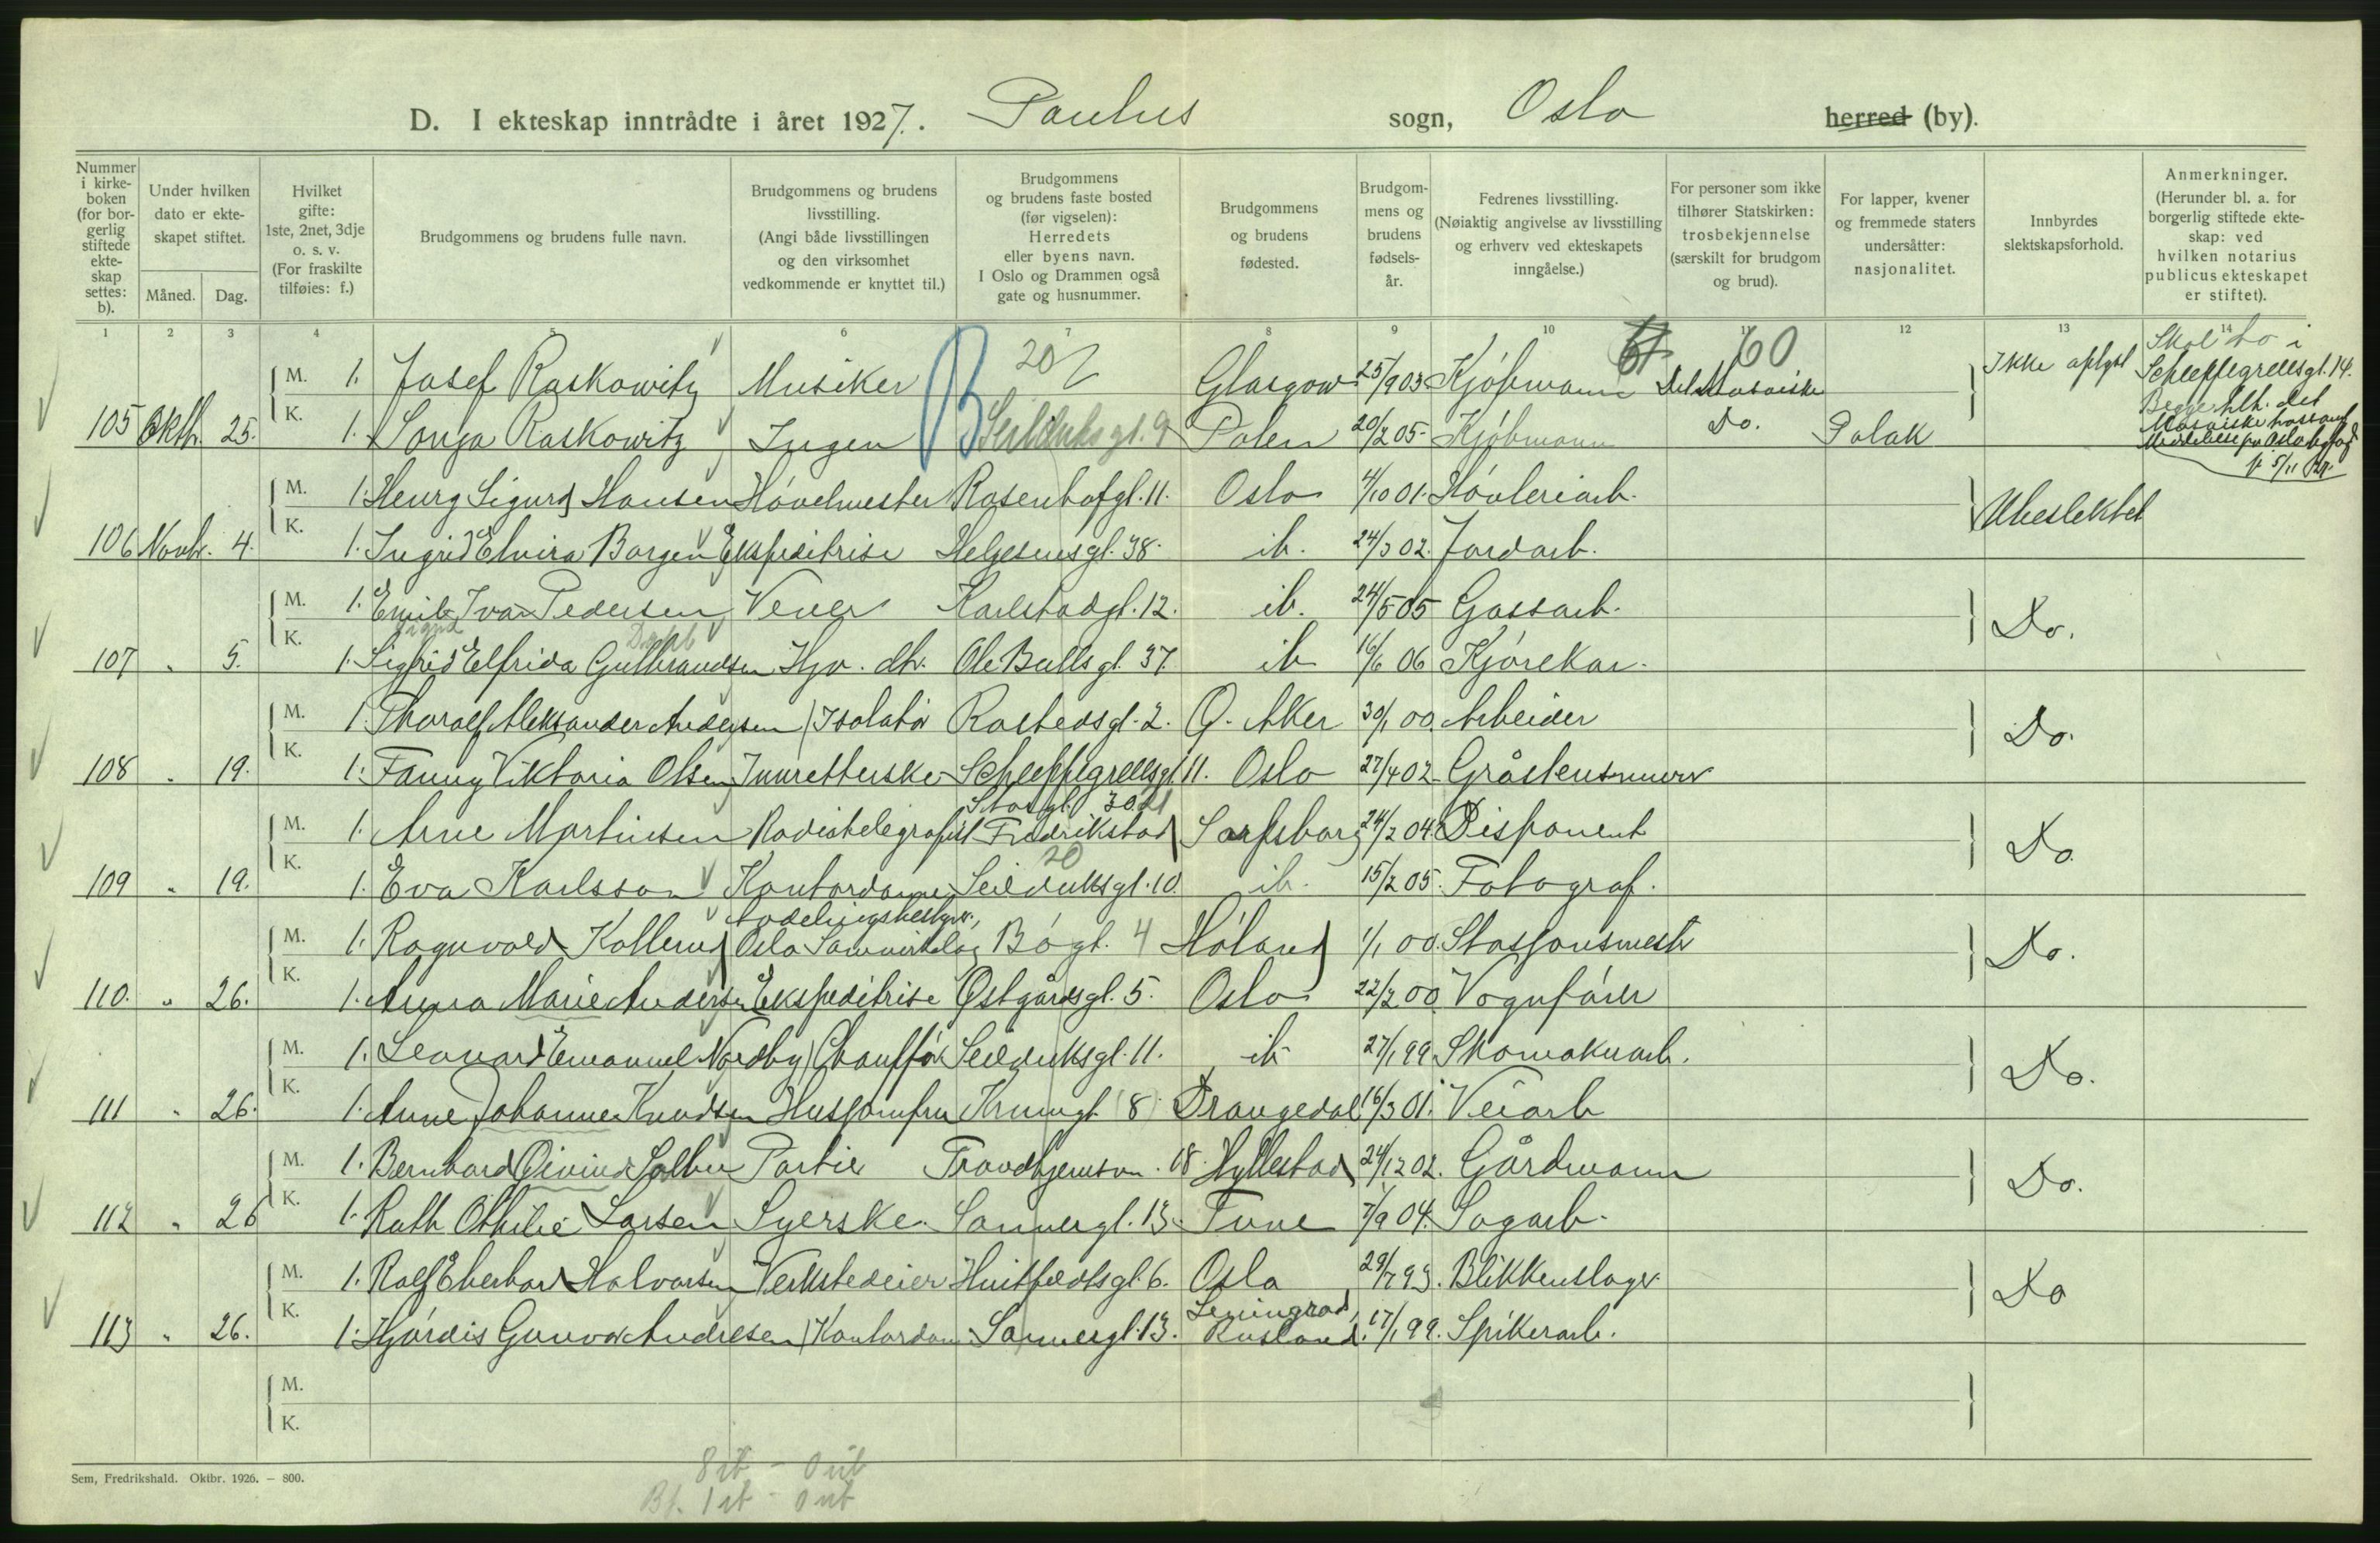 D. I ekteskap inntrådte i året 1927. Paulus sogn, Oslo herred (by).
Nummer i kirke-boken (for bor-gerlig stiftede ekte-skap settes: b).
Under hvilken dato er ekte-skapet stiftet.
Måned. Dag.
Hvilket gifte: 1ste, 2net, 3dje o. s. v. (For fraskilte tilføies: f.)
Brudgommens og brudens fulle navn.
Brudgommens og brudens livsstilling. (Angi både livsstillingen og den virksomhet vedkommende er knyttet til.)
Brudgommens og brudens faste bosted (før vigselen): Herredets eller byens navn. I Oslo og Drammen også gate og husnummer.
Brudgommens og brudens fødested.
Brudgom-mens og brudens fødsels-år.
Fedrenes livsstilling. (Nøiaktig angivelse av livsstilling og erhverv ved ekteskapets inngåelse.)
For personer som ikke tilhører Statskirken: trosbekjennelse (særskilt for brudgom og brud).
For lapper, kvener og fremmede staters undersåtter: nasjonalitet.
Innbyrdes slektskapsforhold.
Anmerkninger. (Herunder bl. a. for borgerlig stiftede ekte-skap: ved hvilken notarius publicus ekteskapet er stiftet).
1 2 3 4 5 6 7 8 9 10 11 12 13 14
M. 1. Josef Raskowitz Musiker B 20 Glasgow 25/9 03 Kjøbmann 60 Det Mosaiske Ikke oplyst Skal bo i Schleppegrellsgt. 14.
105 Oktb. 25. K. 1. Sonja Raskowitz Ingen Seilduksgt. 9 Polen 20/2 05 Kjøbmann Do. Polak Begge tilh. det Mosaiske trossamf.
M. 1. Henry Sigurd Hansen Høvelmester Rosenhofgt. 11. Oslo 4/10 01. Høvleriarb. Ubeslektet
106 Novbr. 4. K. 1. Ingrid Elvira Borgen Ekspeditrise Helgesensgt. 38. ib. 24/3 02. Jordarb.
M. 1. Emil Ivar Pedersen Vever Karlstadgt. 12. ib. 24/5 05 Gassarb. Do.
107 " 5. K. 1. Sigfrid Elfrida Gulbrandsen Hjv. dtr. Ole Bulls gt. 37. ib 16/6 06 Kjørekar.
M. 1. Thoralf Aleksander Andersen Isolatør Rostedsgt. 2. Ø. Aker 30/1 00. Arbeider Do.
108 " 19. K. 1. Fanny Viktoria Olsen Innretterske Schleppegrellsgt. 11. Oslo 27/4 02. Gråstensmurer
M. 1. Arne Martinsen Radiotelegrafist Storgt. 30 Fredrikstad Sarpsborg 24/2 04. Disponent Do.
109 " 19. K. 1. Eva Karlsson Kontordame Seilduksgt. 10 20 ib. 15/2 05. Fotograf.
M. 1. Ragnvald Kollerud Avdelingsbestyr. Oslo Samvirkelag Bøgt. 4 Høland 1/1 00. Stasjonsmestr Do.
110. " 26. K. 1. Anna Marie Andersen Ekspeditrise Østgårdsgt. 5. Oslo 22/2 00. Vognfører
M. 1. Leonard Emanuel Nordby Chauffør Seilduksgt. 11. ib 27/1 99 Skomakerarb. Do.
111 " 26. K. 1. Anne Johanne Knudsen Husjomfru Krumgt. 8. Drangedal 16/3 01. Veiarb
M. 1. Bernhard Øivind Solber Portier Trondhjemsvn. 18. Hyllestad 24/12 02. Gårdmann Do.
112 " 26 K. 1. Ruth Othilie Larsen Syerske. Sannergt. 13. Tune 7/9 04. Sagarb.
M. 1. Rolf Eberhard Halvorsen Verkstedeier Huitfeldtsgt. 6. Oslo 29/7 93. Blikkenslager Do
113 " 26. K. 1. Hjørdis Gunvor Andresen Kontordam Sannergt. 13. Leningrad, Rusland. 17/1 99. Spikerarb.
M.
K.
Sem, Fredrikshald. Oktbr. 1926. — 800.